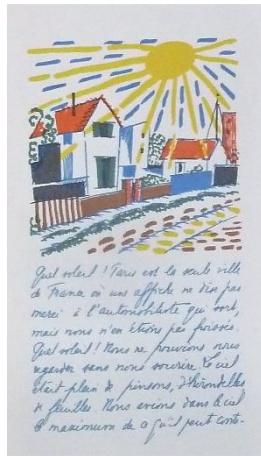 Quel soleil ! Paris est la seule ville
de France où une affiche ne dise pas
merci à l'automobiliste qui sort,
mais nous n'en étions pas
Quel soleil ! Nous ne pouvions nous
regarder sans nous sourire. Le ciel
était plein de pinsons, d'hirondelles
& feuilles. Nous avions dans le ciel
le maximum de ce qu'il peut conte-